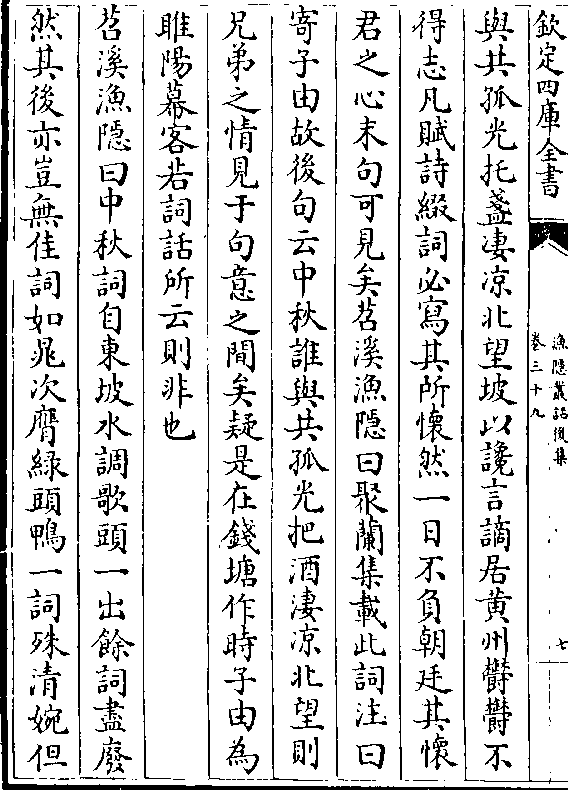 欽定四庫全書
漁隱叢話後集
卷三十九
七
與共孤光托盞淒凉北望坡以讒言謫居黄州鬱鬱不
得志凡賦詩綴詞必寫其所懷然一日不負朝廷其懷
君之心末句可見矣苕溪漁隱曰聚蘭集載此詞注曰
寄子由故後句云中秋誰與共孤光把酒淒凉北望則
兄弟之情見于句意之間矣疑是在錢塘作時子由為
睢陽幕客若詞話所云則非也
苕溪漁隱曰中秋詞自東坡水調歌頭一出餘詞盡廢
然其後亦豈無佳詞如晁次膺緑頭鴨一詞殊清婉但